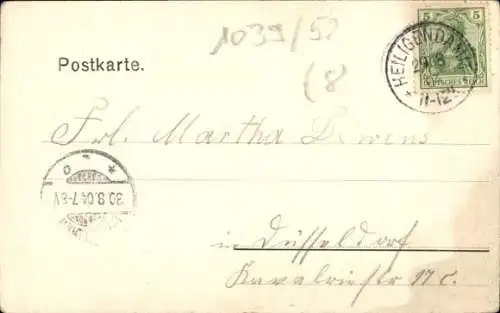 1039/52
(8
Postkarte.
5
HEILIGENDAMM
11-12
Frl. Martha
30.9.04.7-8V
in Düsseldorf
Kavalriestr 17 c.